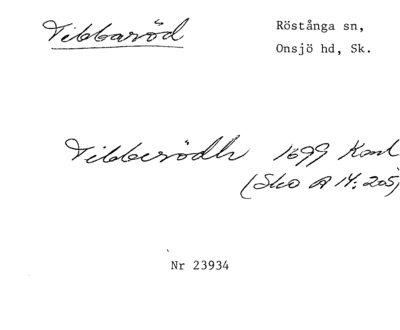 Vibbaröd
Röstånga sn,
Onsjö hd, Sk.
Vibberödh 1699 Konl
(Sko A 14: 205)
Nr 23934